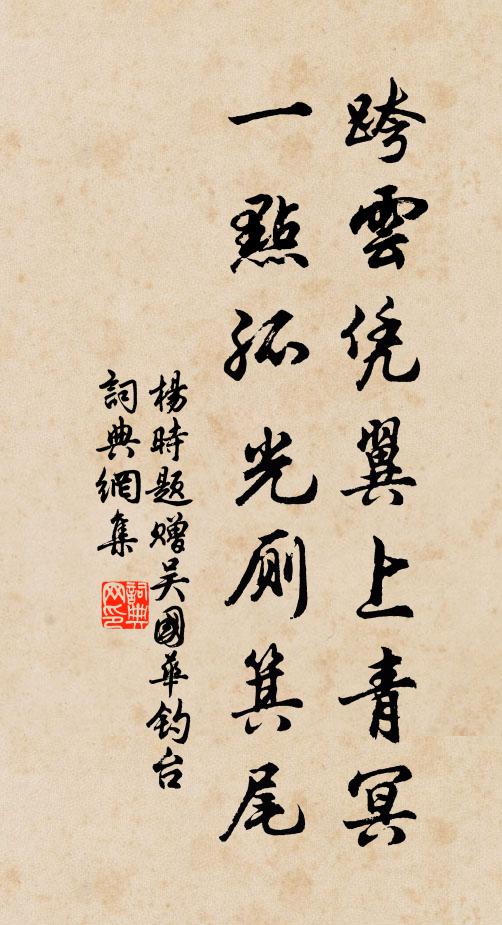 跨雲凭翼上青冥
一點孤光厠箕尾
楊時題贈吴國華钓台
詞典網集
詞典网印